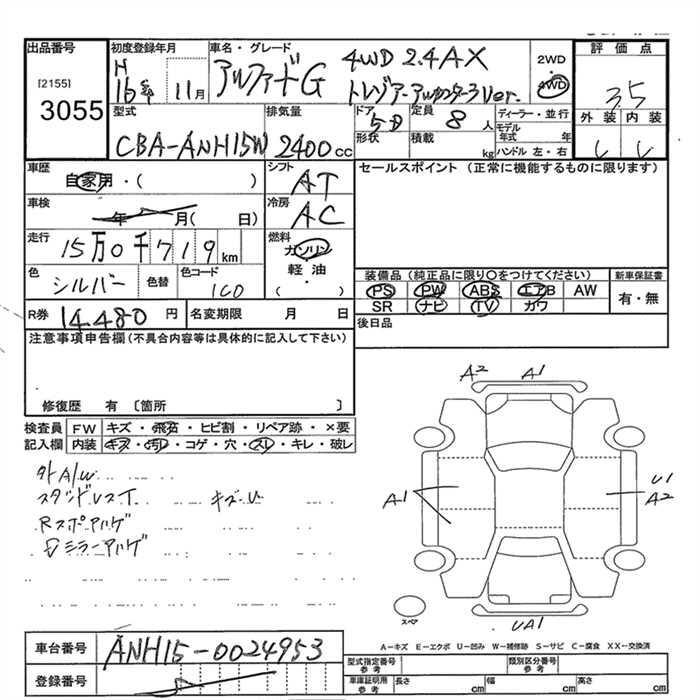 出品番号 初度登録年月 車名・グレード 評価点
[2155] H アルファードG 4WD 2.4AX 2WD
3055 16年 11月 トレゾア・アルカンターラver. 4WD 3.5
型式 排気量 ドア 定員 ディーラー・並行 外装 内装
CBA-ANH15W 2400cc 5D 8人 モデル年式 年
形状 積載 kg ハンドル 左・右
車歴 シフト セールスポイント (正常に機能するものに限ります)
自家用・( ) AT
車検 冷房
年 月( 日) AC
走行 燃料
15万0千719km ガソリン
色 色替 色コード 軽油 装備品 (純正品に限り○をつけてください) 新車保証書
シルバー 1C0 ・( ) PS PW ABS エアB AW 有・無
R券 14,480円 名変期限 月 日 SR ナビ TV カワ
注意事項申告欄 (不具合内容等は具体的に記入して下さい) 後日品
修復歴 有 〔箇所 〕
検査員 FW キズ・飛石・ヒビ割・リペア跡・×要
記入欄 内装 キズ・汚レ・コゲ・穴・スレ・キレ・破レ
外A/W
キズU
Rスポアリゲ
ミラーアリゲ
A2 A1
A1 U1
A2
スペア UA1
A－キズ E－エクボ U－凹み W－補修跡 S－サビ C－腐食 XX－交換済
車台番号 ANH15-0024953
登録番号
型式指定番号 参考 類別区分番号 参考
車庫証明用 参考 長さ cm 幅 cm 高さ cm